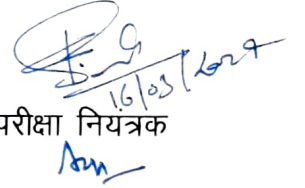 16/03/2024
परीक्षा नियंत्रक